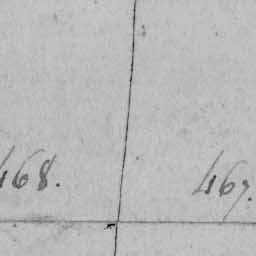 468. 467.